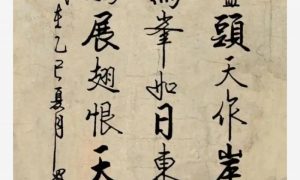 頭天作岸
為峯如日東
展翅恨天
乙巳夏月